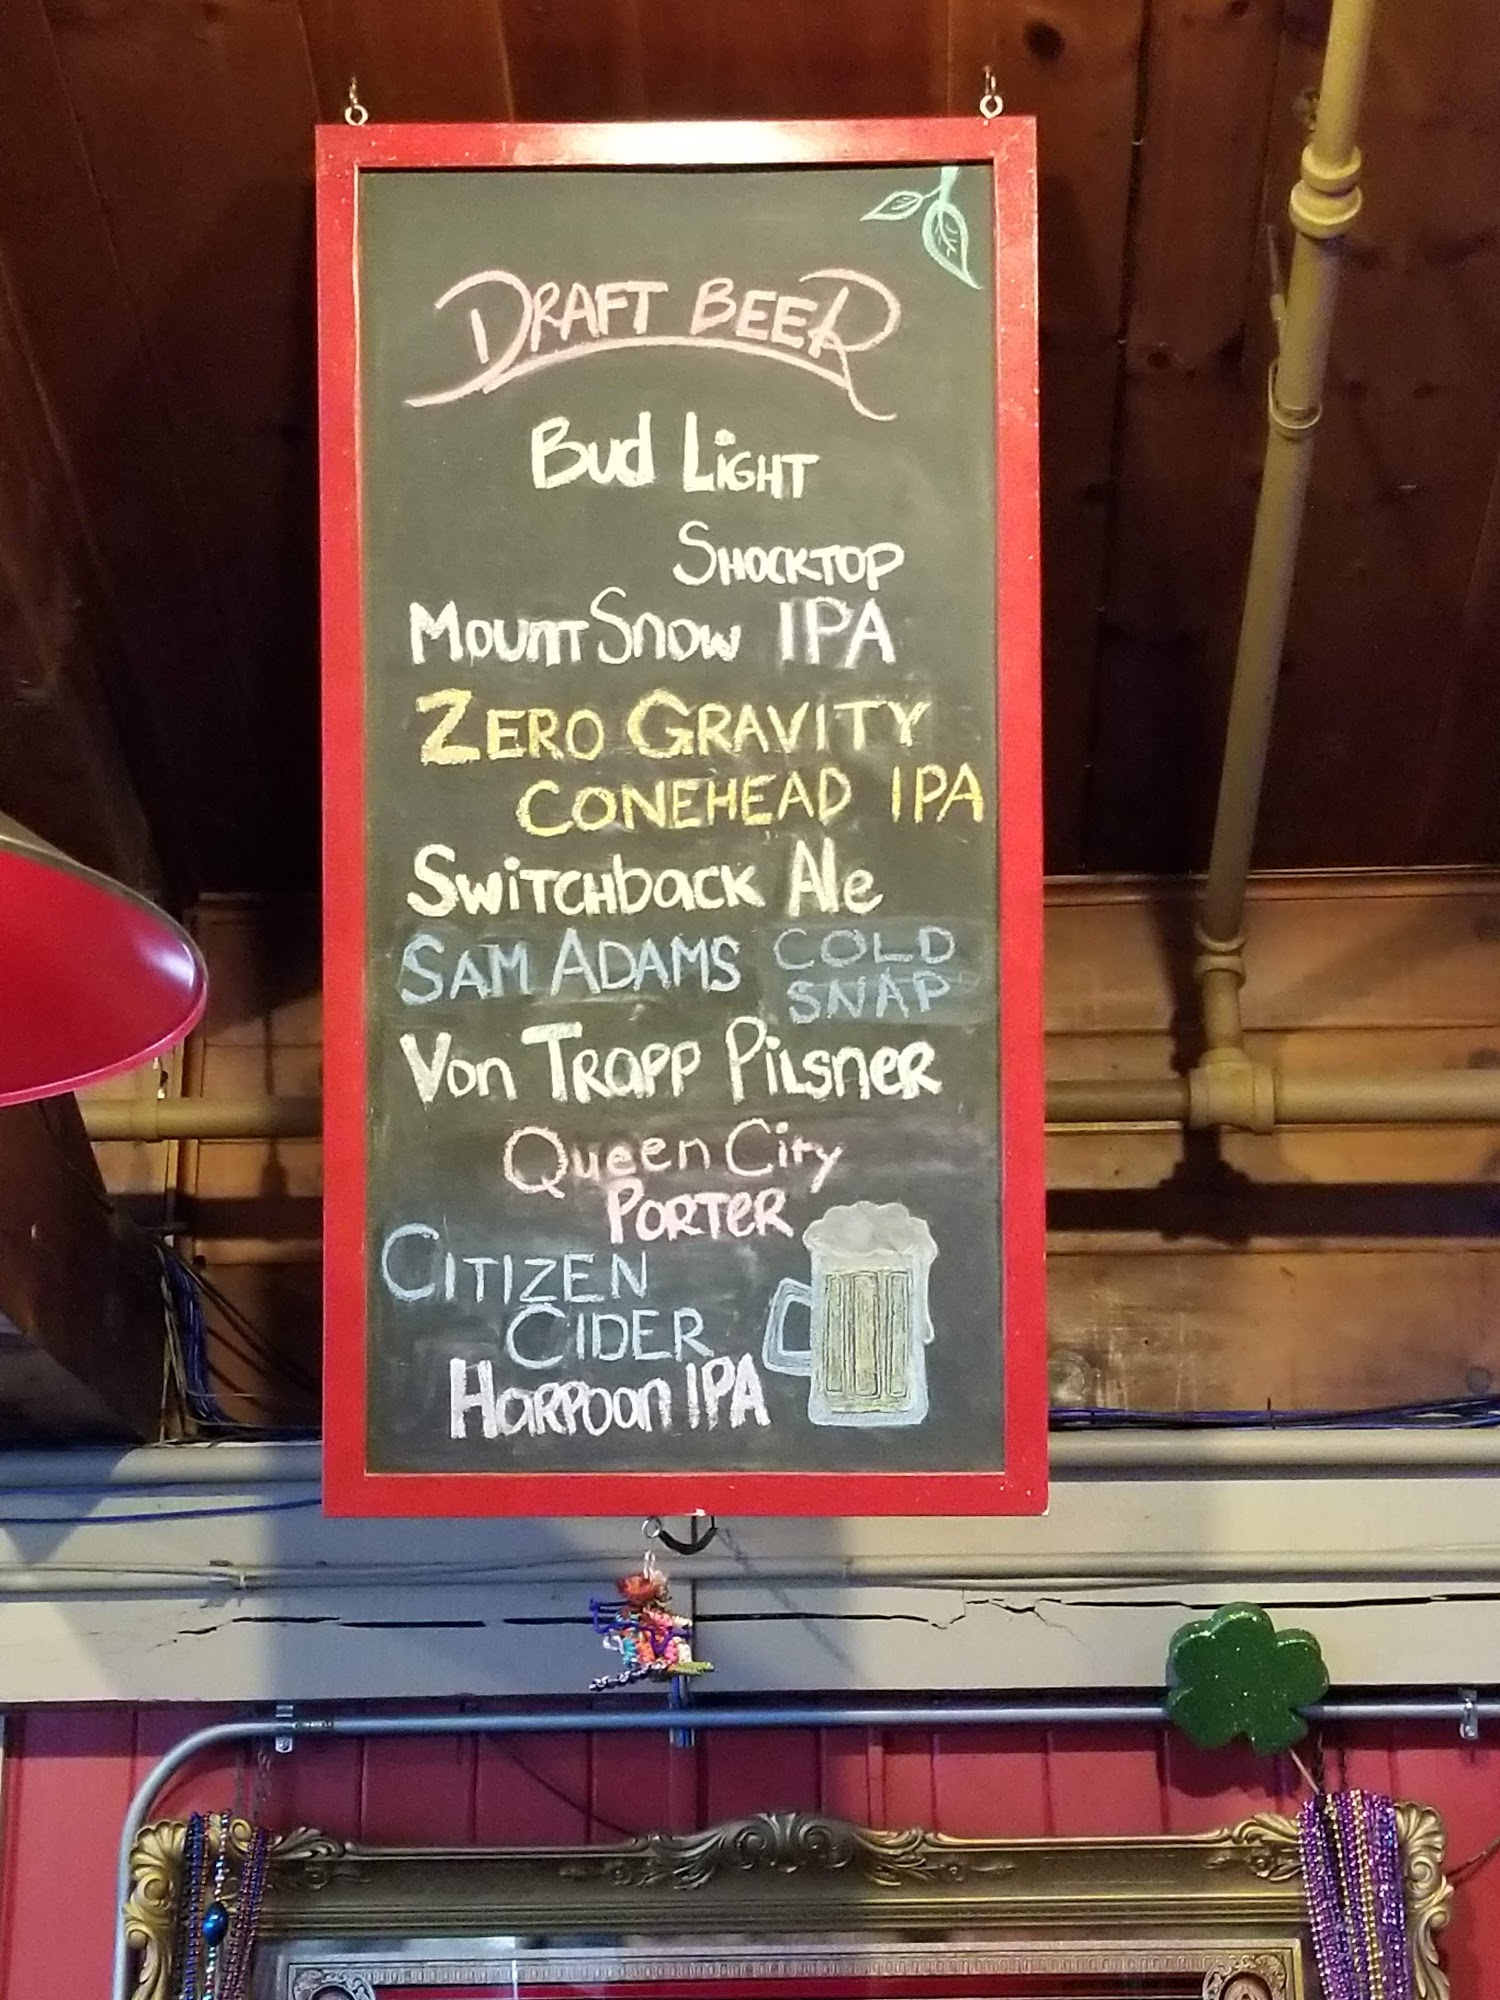 DRAFT BEER
Bud Light
Shocktop
Mount Snow IPA
Zero Gravity
Conehead IPA
Switchback Ale
Sam Adams Cold
Snap
Von Trapp Pilsner
Queen City
Porter
Citizen
Cider
Harpoon IPA